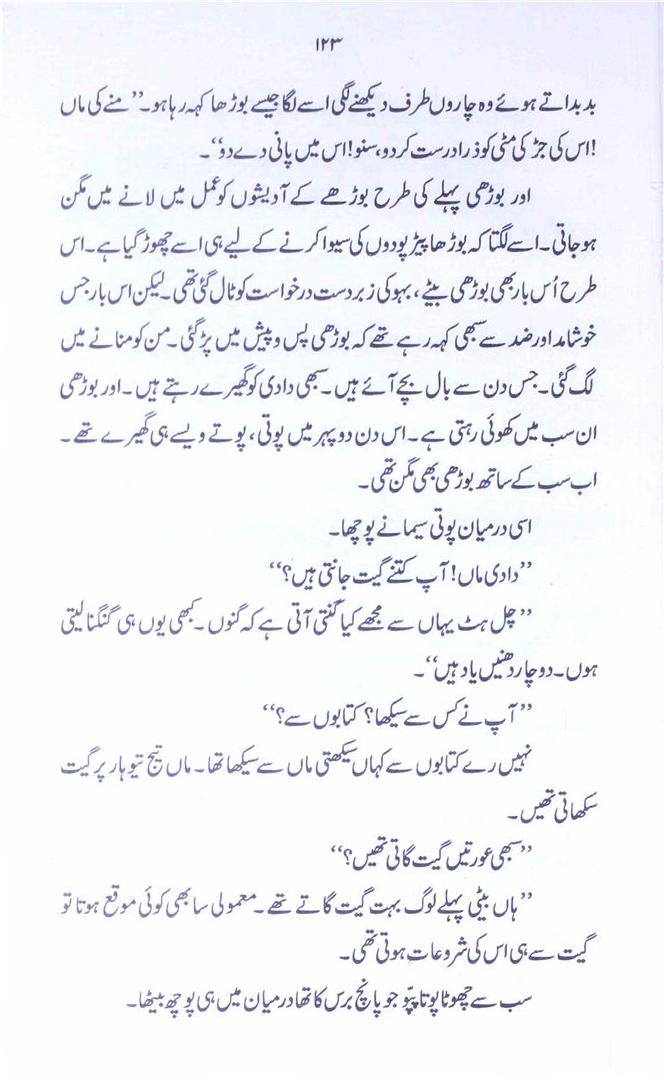 ۱۲۳
بدبداتے ہوئے وہ چاروں طرف دیکھنے لگی اسے لگا جیسے بوڑھا کہہ رہا ہو۔ ’’منے کی ماں
!اس کی جڑ کی مٹی کو ذرا درست کر دو، سنو! اس میں پانی دے دو‘‘۔
اور بوڑھی پہلے کی طرح بوڑھے کے آدیشوں کو عمل میں لانے میں مگن
ہو جاتی۔ اسے لگتا کہ بوڑھا پیڑ پودوں کی سیوا کرنے کے لیے ہی اسے چھوڑ گیا ہے۔ اس
طرح اُس بار بھی بوڑھی بیٹے، بہو کی زبردست درخواست کو ٹال گئی تھی۔ لیکن اس بار جس
خوشامد اور ضد سے سبھی کہہ رہے تھے کہ بوڑھی پس و پیش میں پڑ گئی۔ من کو منانے میں
لگ گئی۔ جس دن سے بال بچے آئے ہیں۔ سبھی دادی کو گھیرے رہتے ہیں۔ اور بوڑھی
ان سب میں کھوئی رہتی ہے۔ اس دن دوپہر میں پوتی، پوتے ویسے ہی گھیرے تھے۔
اب سب کے ساتھ بوڑھی بھی مگن تھی۔
اسی درمیان پوتی سیما نے پوچھا۔
’’دادی ماں! آپ کتنے گیت جانتی ہیں؟‘‘
’’چل ہٹ یہاں سے مجھے کیا گنتی آتی ہے کہ گنوں۔ کبھی یوں ہی گنگنا لیتی
ہوں۔ دو چار دھنیں یاد ہیں‘‘۔
’’آپ نے کس سے سیکھا؟ کتابوں سے؟‘‘
نہیں رے کتابوں سے کہاں سیکھتی ماں سے سیکھا تھا۔ ماں تیج تیوہار پر گیت
سکھاتی تھیں۔
’’سبھی عورتیں گیت گاتی تھیں؟‘‘
’’ہاں بیٹی پہلے لوگ بہت گیت گاتے تھے۔ معمولی سا بھی کوئی موقع ہوتا تو
گیت سے ہی اس کی شروعات ہوتی تھی۔
سب سے چھوٹا پوتا پپّو جو پانچ برس کا تھا درمیان میں ہی پوچھ بیٹھا۔